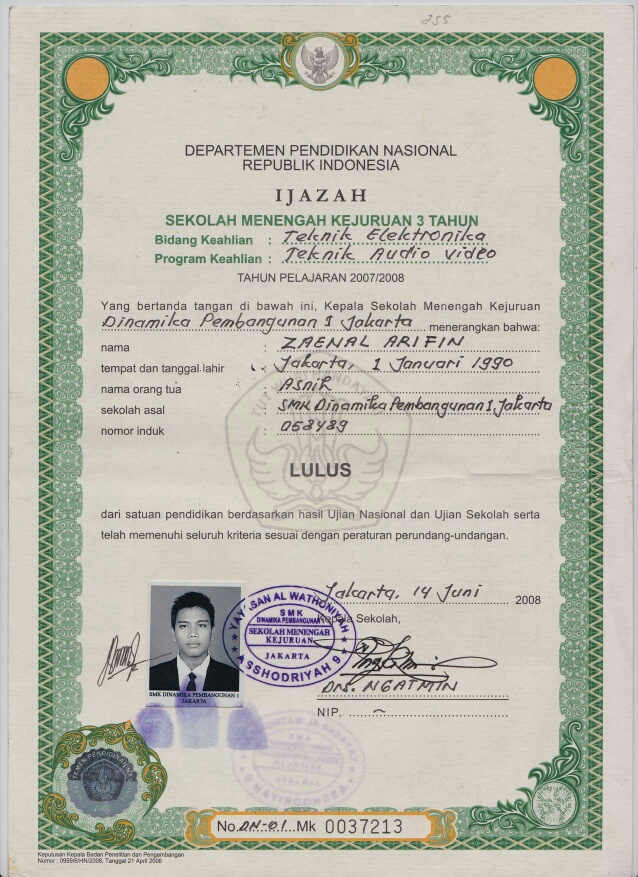 255
DEPARTEMEN PENDIDIKAN NASIONAL
REPUBLIK INDONESIA
IJAZAH
SEKOLAH MENENGAH KEJURUAN 3 TAHUN
Bidang Keahlian : Teknik Elektronika
Program Keahlian : Teknik Audio Video
TAHUN PELAJARAN 2007/2008
Yang bertanda tangan di bawah ini, Kepala Sekolah Menengah Kejuruan
Dinamika Pembangunan 1 Jakarta menerangkan bahwa:
nama : ZAENAL ARIFIN
tempat dan tanggal lahir : Jakarta, 1 Januari 1990
nama orang tua : Asnih
sekolah asal : SMK Dinamika Pembangunan 1, Jakarta
nomor induk : 058489
LULUS
dari satuan pendidikan berdasarkan hasil Ujian Nasional dan Ujian Sekolah serta
telah memenuhi seluruh kriteria sesuai dengan peraturan perundang-undangan.
Jakarta, 14 Juni 2008
Kepala Sekolah,
YAYASAN AL WATHONIYAH
SMK
DINAMIKA PEMBANGUNAN 1
SEKOLAH MENENGAH
KEJURUAN
JAKARTA
ASSHODRIYAH 9
SMK DINAMIKA PEMBANGUNAN 1
JAKARTA
DRS. NGATMIN
NIP. ~
No. DN-01 Mk 0037213
Keputusan Kepala Badan Penelitian dan Pengembangan
Nomor : 0989/6/HN/2008, Tanggal 21 April 2008